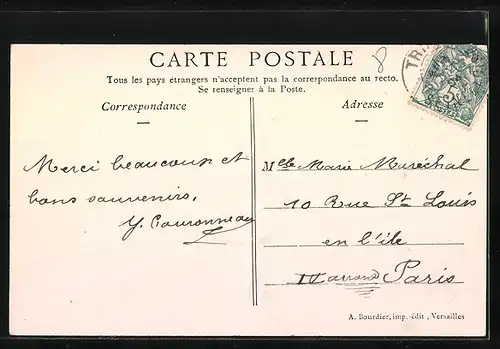 CARTE POSTALE
8
Tous les pays étrangers n'acceptent pas la correspondance au recto.
Se renseigner à la Poste.
Correspondance
Adresse
Merci beaucoup et
bons souvenirs.
Y. Couronneau
Melle Marie Maréchal
10 Rue St Louis
en l'île
IV arrond Paris
A. Bourdier, imp.-édit, Versailles